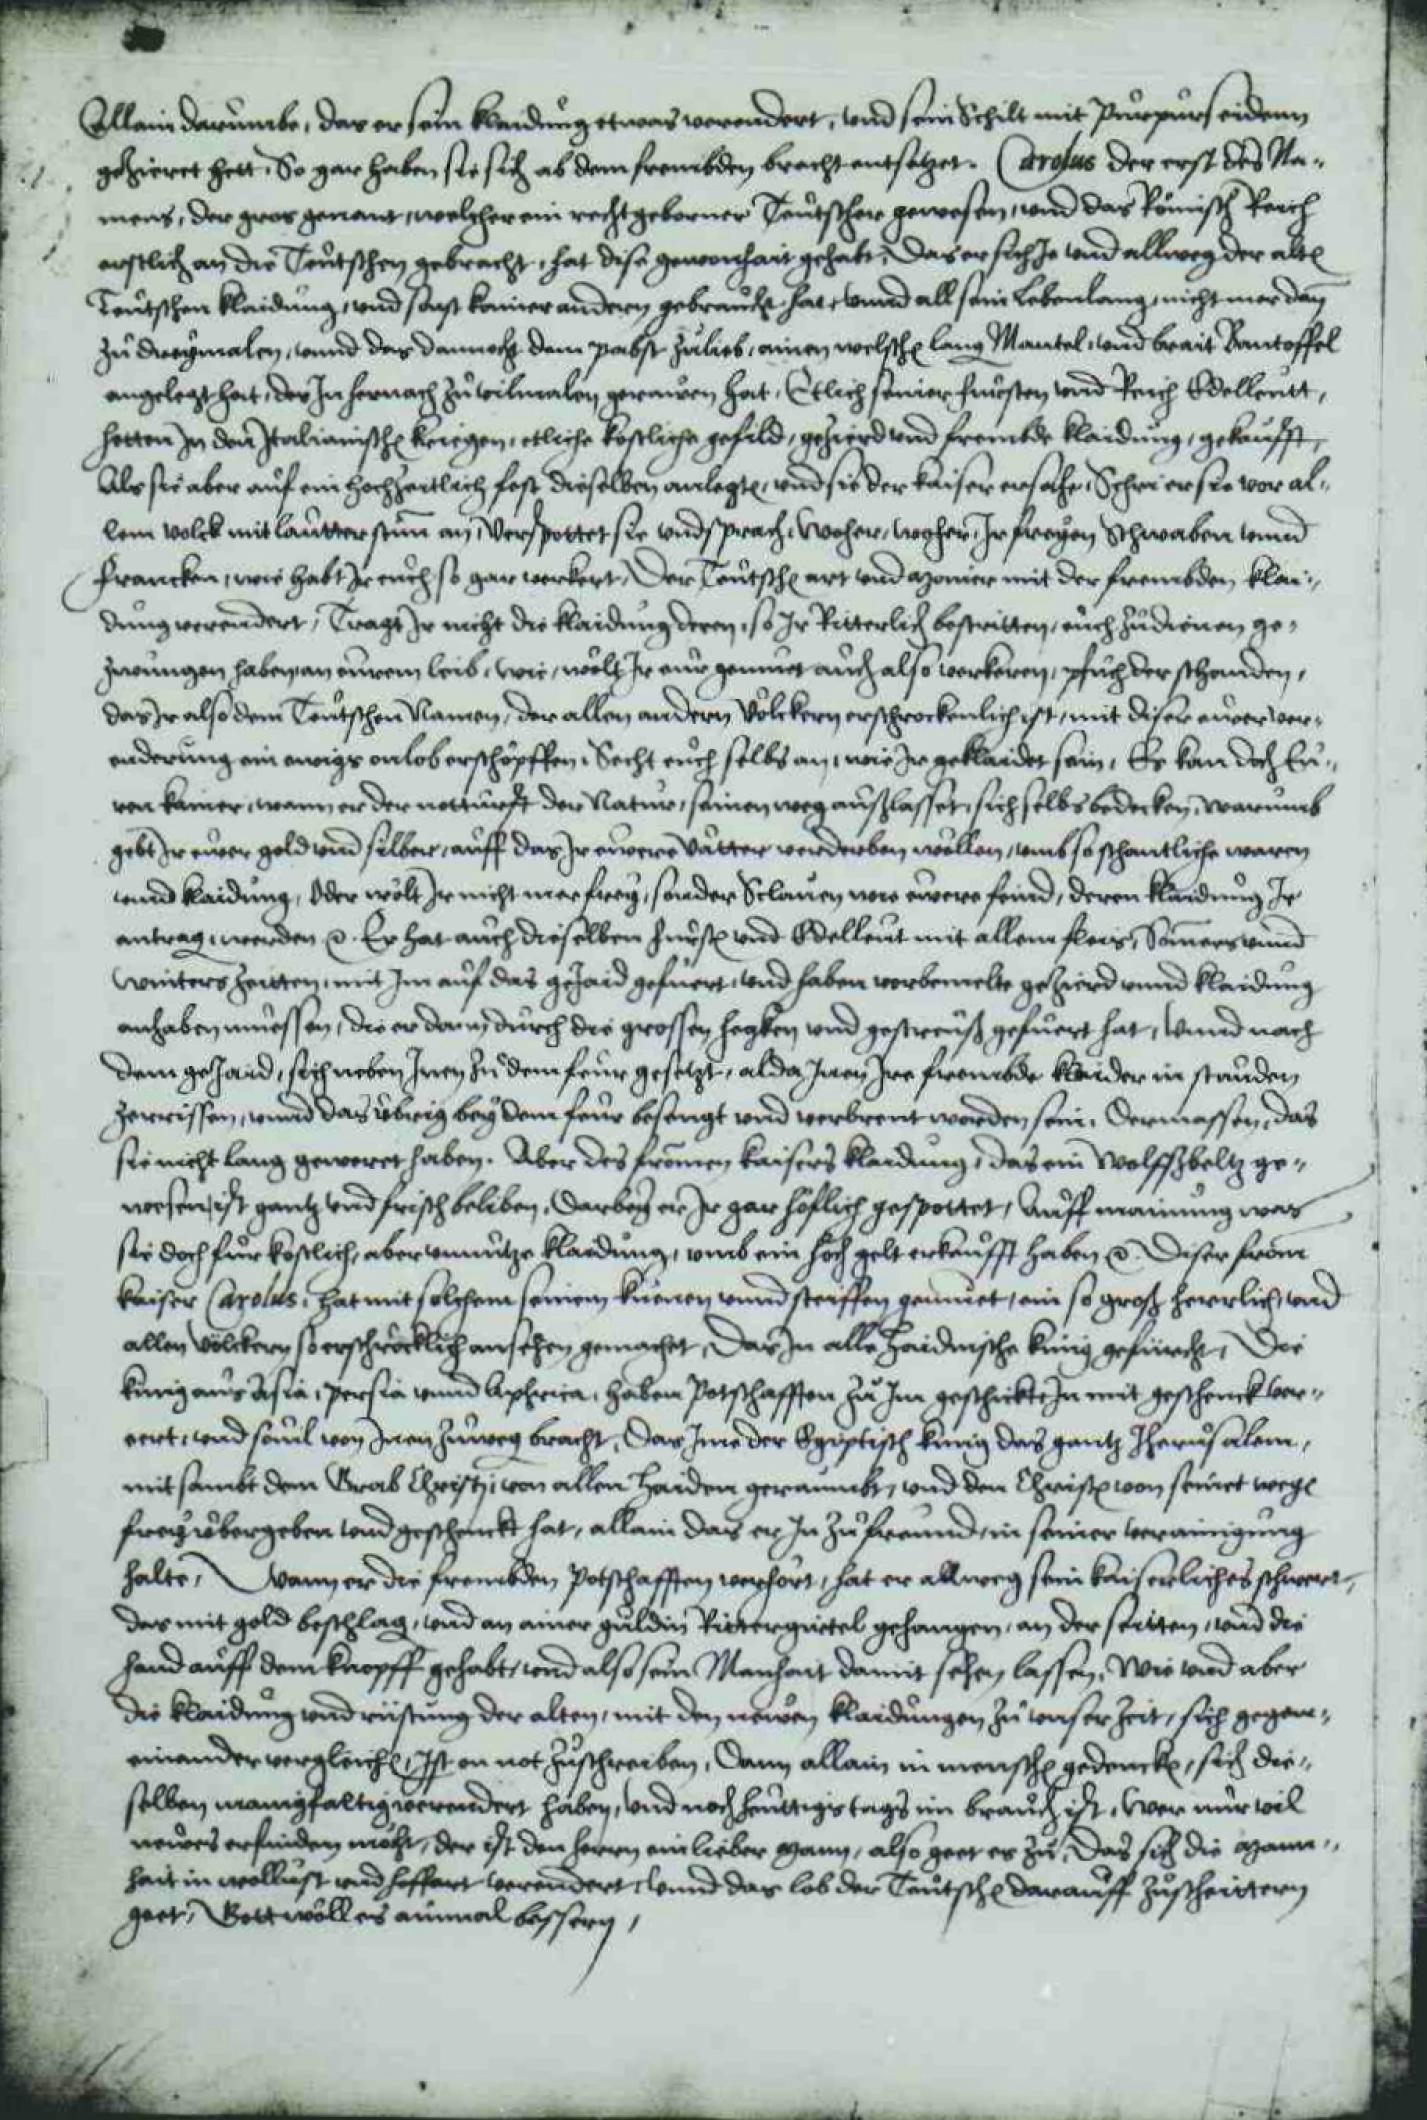 Allain darumbe, das er sein klaidung etwas verendert, und sein Schilt mit Purpurseidenn
gezieret hett, So gar haben sie sich ab dem frembden bracht entsetzet. Carolus der erst des Na-
mens, der gros genant, welcher ein recht geborner Teutscher gewesen, und das Römisch Reich
erstlich an die Teutschen gebracht, hat dise gewonhait gehabt, Das er sich Je und allweg der alte
Teutschen klaidung, und sonst kainer andern gebraucht hat, unnd all sein Lebenlang, nicht mer dan
zu dreymalen, unnd das dannocht dem pabst zulieb, ainen welsche lang Mantel, und brait Pantoffel
angelegt hat, des In hernach zu vilmalen gerauen hat, Etlich seiner fursten und Reich Edelleutt,
hetten In den Italianische kriegen, etliche kostliche gefild, gezierd und frembde klaidung, gekaufft,
Als sie aber auf ein hochzeitlich fest dieselben anlegte, und sie der kaiser ersahe, Schrier sie vor al-
lem volck mit lautter stim an, Verspottet sie und sprach, Woher, woher, Ir freyen Schwaben unnd
Francken, wie habt Ir euch so gar verkert, Der Teutsche art und manier mit der frembden klai-
dung verendert, Tragt Ir nicht die klaidung deren, so Ir Ritterlich bestritten, euch zudienen ge-
zwungen haben, an eurem leib, wie, wölt Ir eur gemuet auch also verkeren, pfuch der schanden,
das Ir also dem Teutschen Namen, der allen andern Völckern erschrockenlich ist, mit diser euer ver-
enderung ein ewigs onlob erschöpffen, Secht euch selbs an, wie Ir geklaidet sein, Es kan doch Eu-
ren kainer, wann er der notturfft der Natur, seinen weg außlasset, sich selbs bedecken, warumb
gebt Ir euer gold und silber, auff das Ir euere Vätter verderben wöllen, umb so schantliche waren
unnd klaidung, Oder wölt Ir nicht mer frey, sonder Sclauen wie euere feind, deren klaidung Ir
antrag, werden. Er hat auch dieselben furste und Edelleut mit allem fleis, Somers unnd
winters zeitten, mit Im auf das gejaid gefuert, und haben vorbemelte gezierd unnd klaidung
anhaben muessen, die er dann durch die grossen hegken und gestreuß gefuert hat, Unnd nach
dem gejaid, sich neben Inen zu dem feur gesetzt, alda Inen Ire frembde klaider in stauden
zerrissen, unnd das ubrig bey dem feur besengt und verbrent worden sein, Dermassen, das
sie nicht lang geweret haben. Aber des fromen kaisers klaidung, das ein Wolffsbeltz ge-
wesen, ist gantz und frisch beliben, Darbey er Ir gar höflich gespottet, Auff mainung was
sie doch fur kostlich, aber unnutze klaidung, umb ein hoch gelt erkaufft haben. Diser from
kaiser Carolus, hat mit solchem seinem kuenen unnd steiffen gemuet, ein so groß herrlich, und
allen völckern so erschrocklich ansehen gemachet, Das In alle Haidnische kunig gefürcht, Die
kunig aus Asia, persia unnd Aphrica, haben Potschafften zu Im geschickt, In mit geschenck ver-
eert, und souil von Inen zuweg bracht, Das Ime der Egiptisch kunig das gantz Jherusalem,
mit sambt dem Grab Christi, von allen Haiden geraumbt, und den Christe von seinet wege
frey ubergeben und geschenckt hat, allain das er In zu freund, in seiner verainigung
halte, Wann er die frembden Potschafften verhört, hat er allweg sein kaiserliches schwert,
das mit gold beschlag, und an ainer guldin Rittergürtel gehangen, an der seitten, und die
hand auff dem knopff gehabt, und also sein Manhait damit sehen lassen, Wie und aber
die klaidung und rüstung der alten, mit den newen klaidungen zu unser zeit, sich gegen-
einander vergleiche, Ist on not zuschreiben, Dann allain in mensche gedencke, sich die-
selben manigfaltig verendert haben, und noch heuttigs tags im brauch ist, Wer nur vil
newes erfinden möcht, der ist den herrn ein lieber mann, also geet es zu, Das sich die mann-
hait in wollust und hoffart verendert, Unnd das lob der Teutsche darauff zuscheittern
geet, Gott wöll es ainmal bessern,